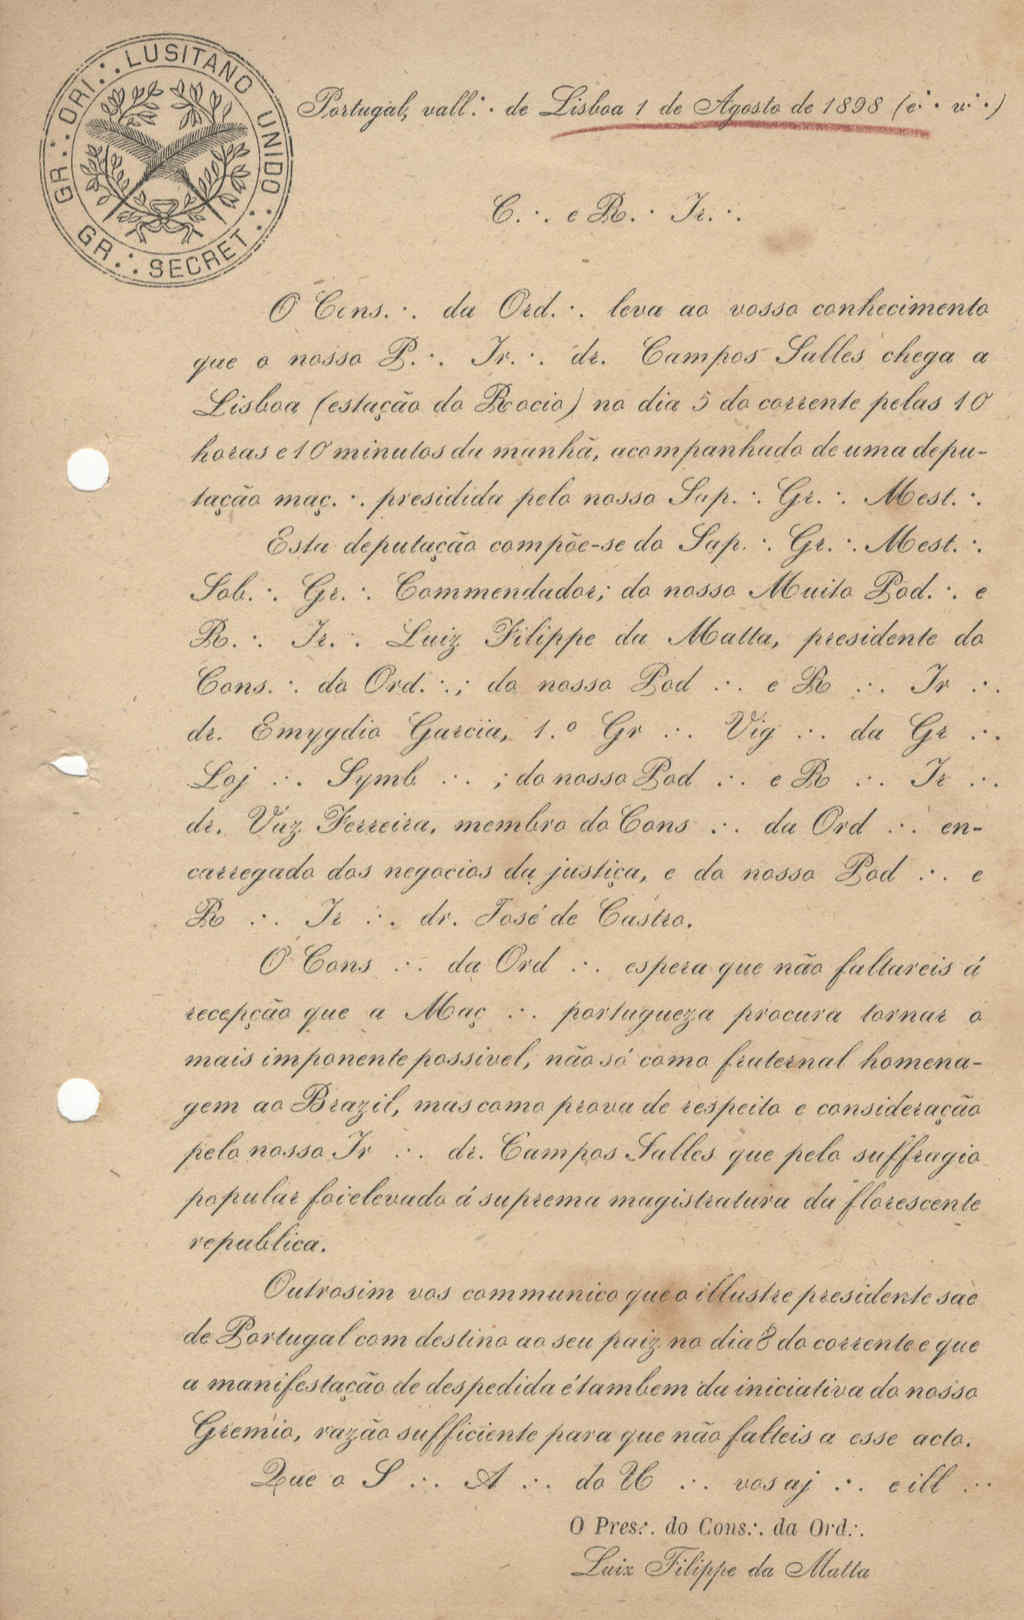 GR∴ ORI∴ LUSITANO UNIDO∴
GR∴ SECRET∴
Portugal, vall∴ de Lisboa 1 de Agosto de 1898 (e∴ v∴)
C.∴ e R.∴ Ir.∴
O Cons.∴ da Ord.∴ leva ao vosso conhecimento
que o nosso P.∴ Ir.∴ dr. Campos Salles chega a
Lisboa (estação do Rocio) no dia 5 do corrente pelas 10
horas e 10 minutos da manhã, acompanhado de uma depu-
tação maç.∴ presidida pelo nosso Sap.∴ Gr.∴ Mest.∴
Esta deputação compõe-se do Sap.∴ Gr.∴ Mest.∴
Sob.∴ Gr.∴ Commendador; do nosso Muito Pod.∴ e
R.∴ Ir.∴ Luiz Filippe da Matta, presidente do
Cons.∴ da Ord.∴; do nosso Pod∴ e R∴ Ir∴
dr. Emygdio Garcia, 1.º Gr∴ Vig∴ da Gr∴
Loj∴ Symb∴; do nosso Pod∴ e R∴ Ir∴
dr. Vaz Ferreira, membro do Cons∴ da Ord∴ en-
carregado dos negocios da justiça, e do nosso Pod∴ e
R∴ Ir∴ dr. José de Castro.
O Cons∴ da Ord∴ espera que não faltareis á
recepção que a Maç∴ portugueza procura tornar o
mais imponente possivel, não só como fraternal homena-
gem ao Brazil, mas como prova de respeito e consideração
pelo nosso Ir∴ dr. Campos Salles que pelo suffragio
popular foi elevado á suprema magistratura da florescente
republica.
Outrosim vos communico que o illustre presidente sae
de Portugal com destino ao seu paiz no dia 8 do corrente e que
a manifestação de despedida é tambem da iniciativa do nosso
Gremio, razão sufficiente para que não falteis a esse acto.
Que o S∴ A∴ do U∴ vos aj∴ e ill∴
O Pres∴ do Cons∴ da Ord∴
Luiz Filippe da Matta